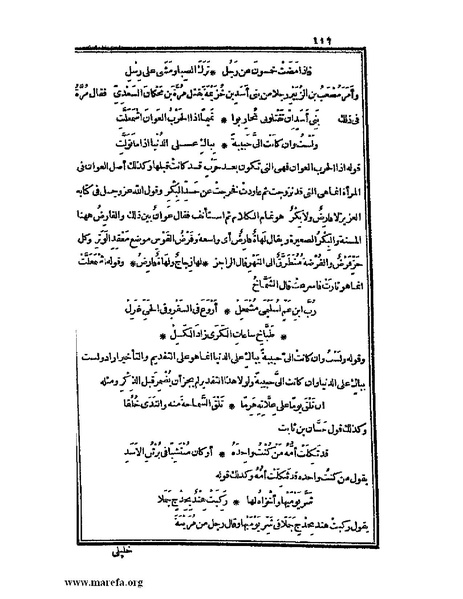 ١١٩
فاذا مضت خمسون عن رجل * ترك الصبا ومشى على رسل
وأمر مصعب بن الزبير رجلا من بنى أسد بن خزيمة بقتل مرة بن محكان السعدى فقال مرة
فى ذلك بنى أسد ان تقتلونى تحاربوا * تميما اذا الحرب العوان اشمعلت
ولست وان كانت الى حبيبة * بباك على الدنيا اذا ما تولت
قوله اذا الحرب العوان فهى التى تكون بعد حرب قد كانت قبلها وكذلك أصل العوان فى
المرأة انما هى التى قد تزوجت ثم عاودت فخرجت عن حد البكر وقول الله عز وجل فى كتابه
العزيز لا فارض ولا بكر هو تمام الكلام ثم استأنف فقال عوان بين ذلك والفارض ههنا
المسنة والبكر الصغيرة ويقال لهاة فارض أى واسعة وفرض القوس موضع معقد الوتر وكل
حز فرض والفرضة متطرق الى النهر قال الراجز * لها زجاج ولهاة فارض * وقوله اشمعلت
انما هو ثارت فأسرعت قال الشماخ
رب ابن عم لسليمى مشمعل * أروع فى السفر وفى الحى غزل
* طباخ ساعات الكرى زاد الكسل *
وقوله ولست وان كانت الى حبيبة بباك على الدنيا انما هو على التقديم والتأخير أراد ولست
بباك على الدنيا وان كانت الى حبيبة ولولا هذا التقدير لم يجز أن يضمر قبل الذكر ومثله
ان تلق يوما على علاته هرما * تلق السماحة منه والندى خلقا
وكذلك قول حسان بن ثابت
قد ثكلت أمه من كنت واحده * أو كان منتشبا فى برثن الاسد
يقول من كنت واحده قد ثكلت أمه وكذلك قوله
شر يوميها وأخزاه لها * ركبت هند بحدج جملا
يقول ركبت هند بحدج جملا فى شر يوميها وقال رجل من مزينة
خليلى
www.marefa.org